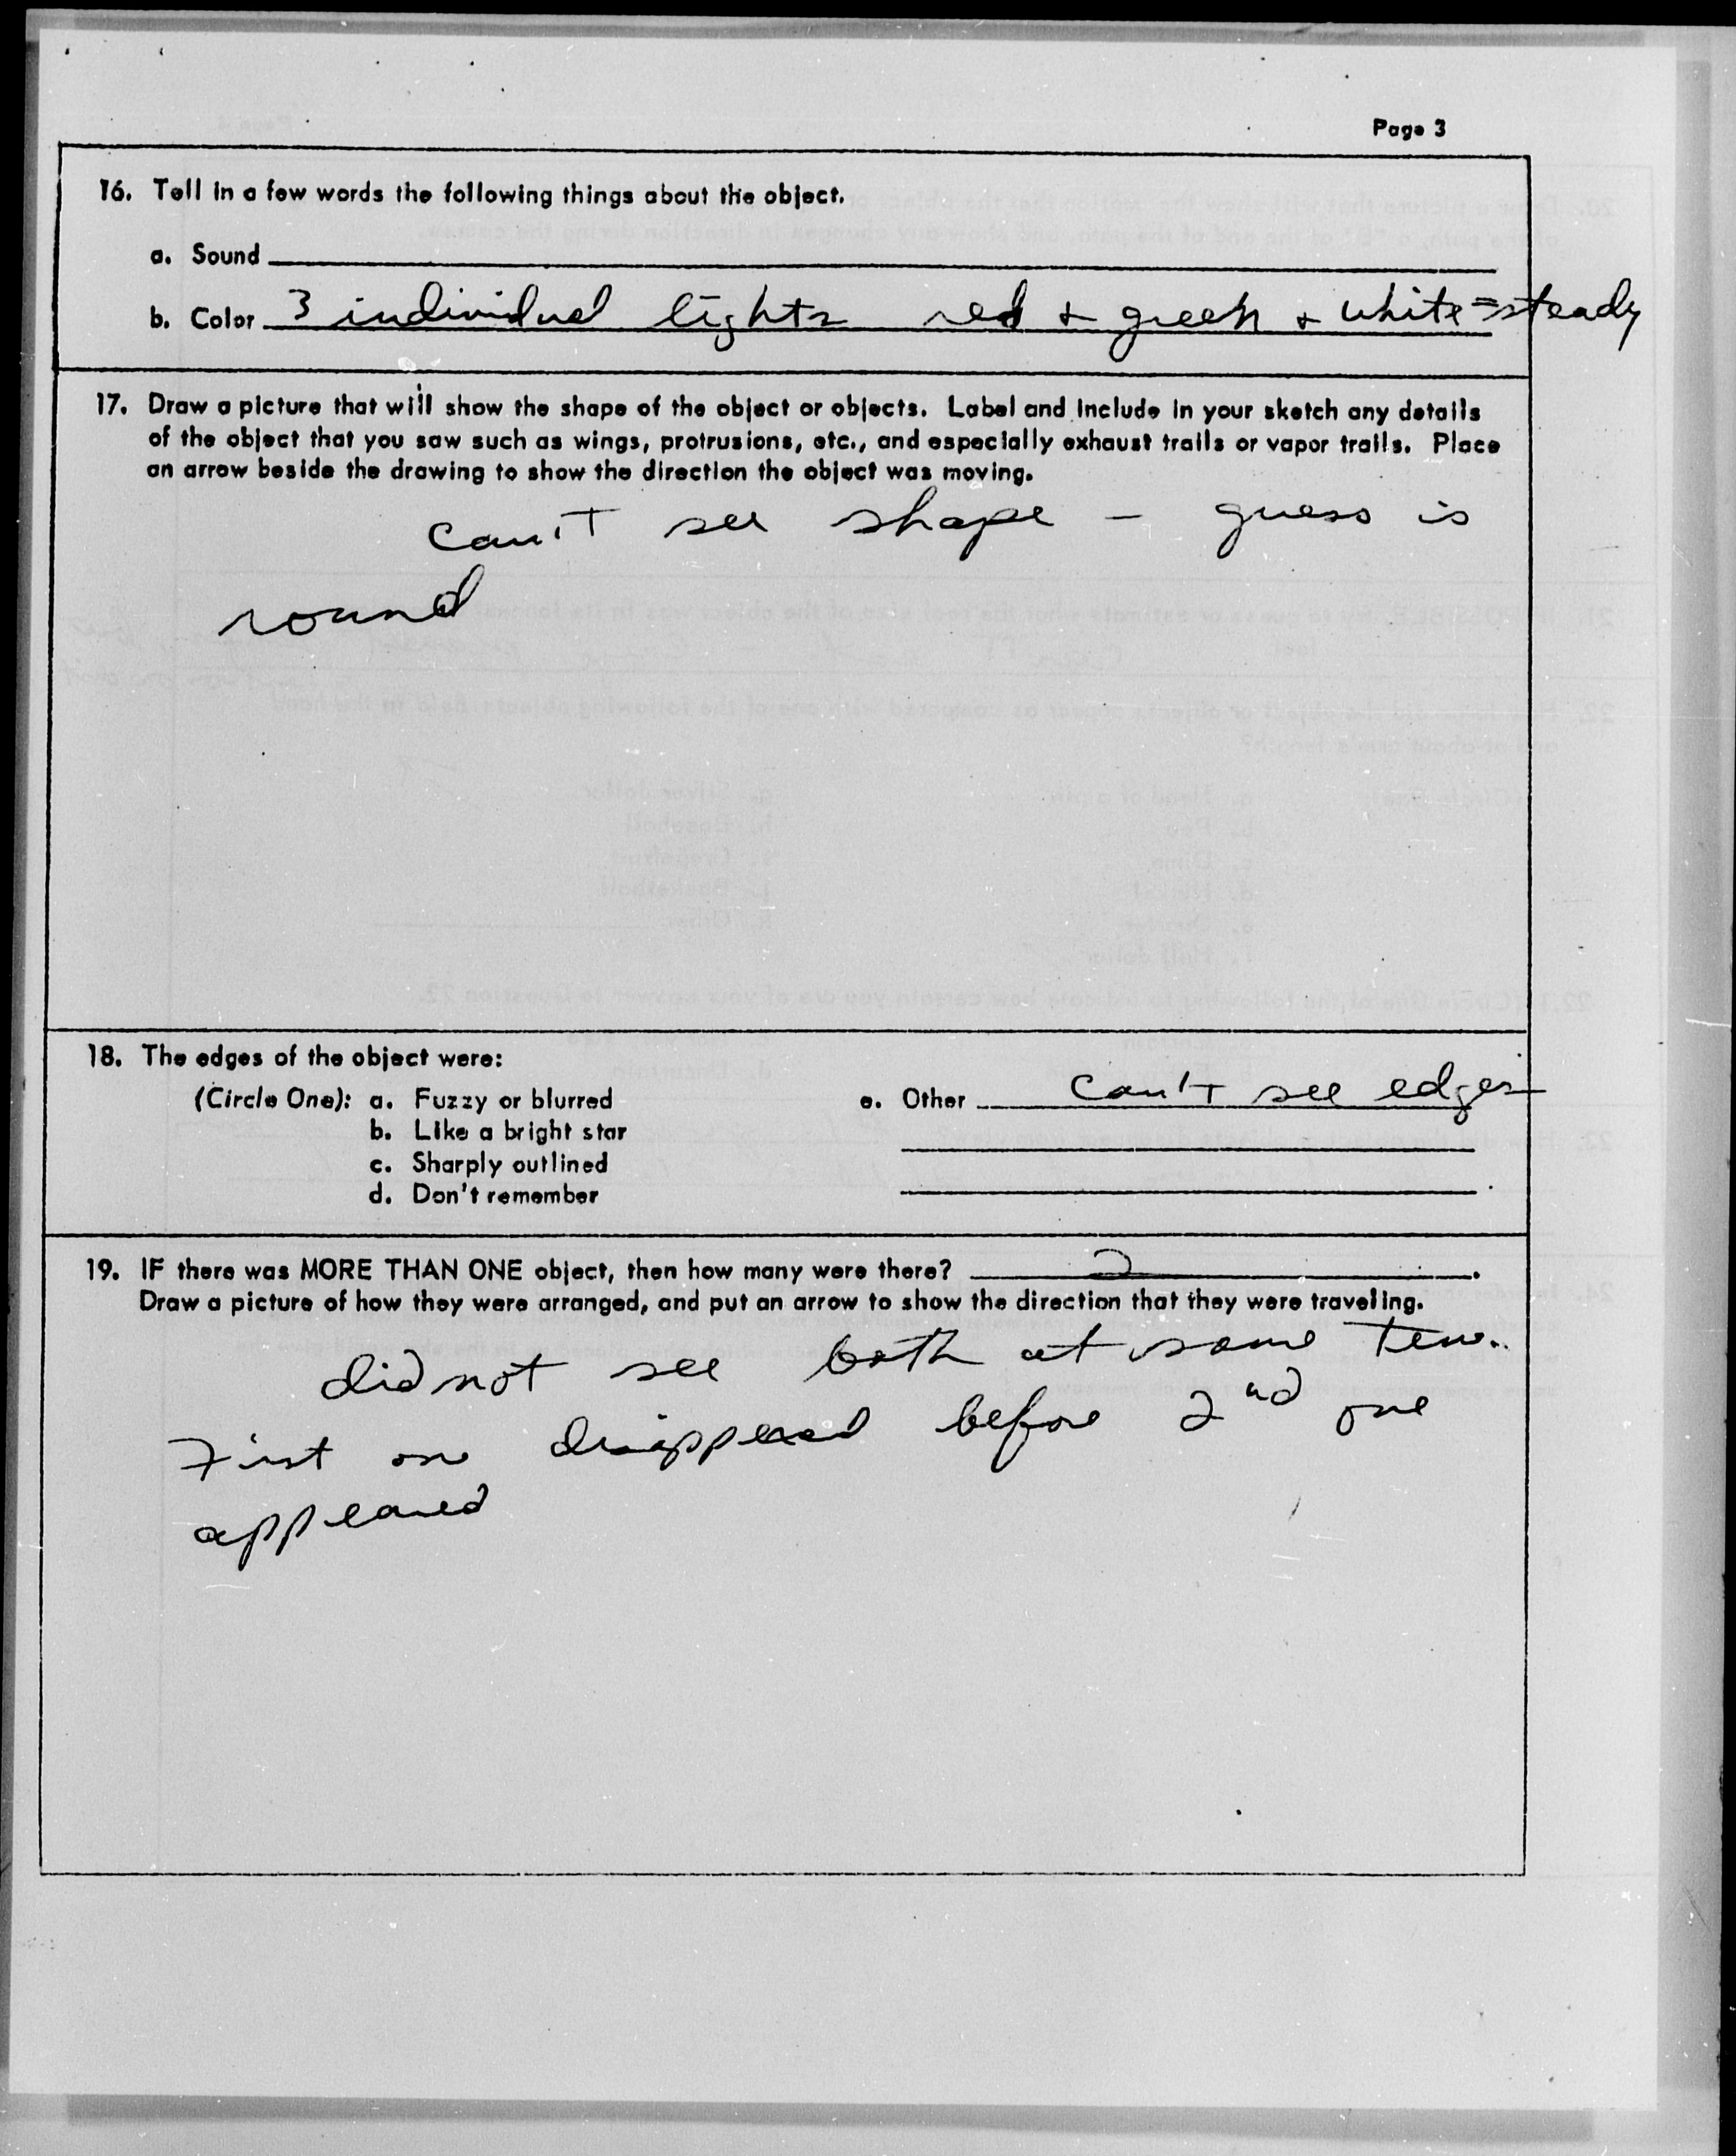 Page 3
16. Tell in a few words the following things about the object.
a. Sound
b. Color 3 individual lights red + green + white = steady
17. Draw a picture that will show the shape of the object or objects. Label and include in your sketch any details
of the object that you saw such as wings, protrusions, etc., and especially exhaust trails or vapor trails. Place
an arrow beside the drawing to show the direction the object was moving.
can't see shape - guess is
round
18. The edges of the object were:
(Circle One): a. Fuzzy or blurred e. Other can't see edges
b. Like a bright star
c. Sharply outlined
d. Don't remember
19. IF there was MORE THAN ONE object, then how many were there? 2.
Draw a picture of how they were arranged, and put an arrow to show the direction that they were traveling.
did not see both at same
First one before 2nd one
appeared